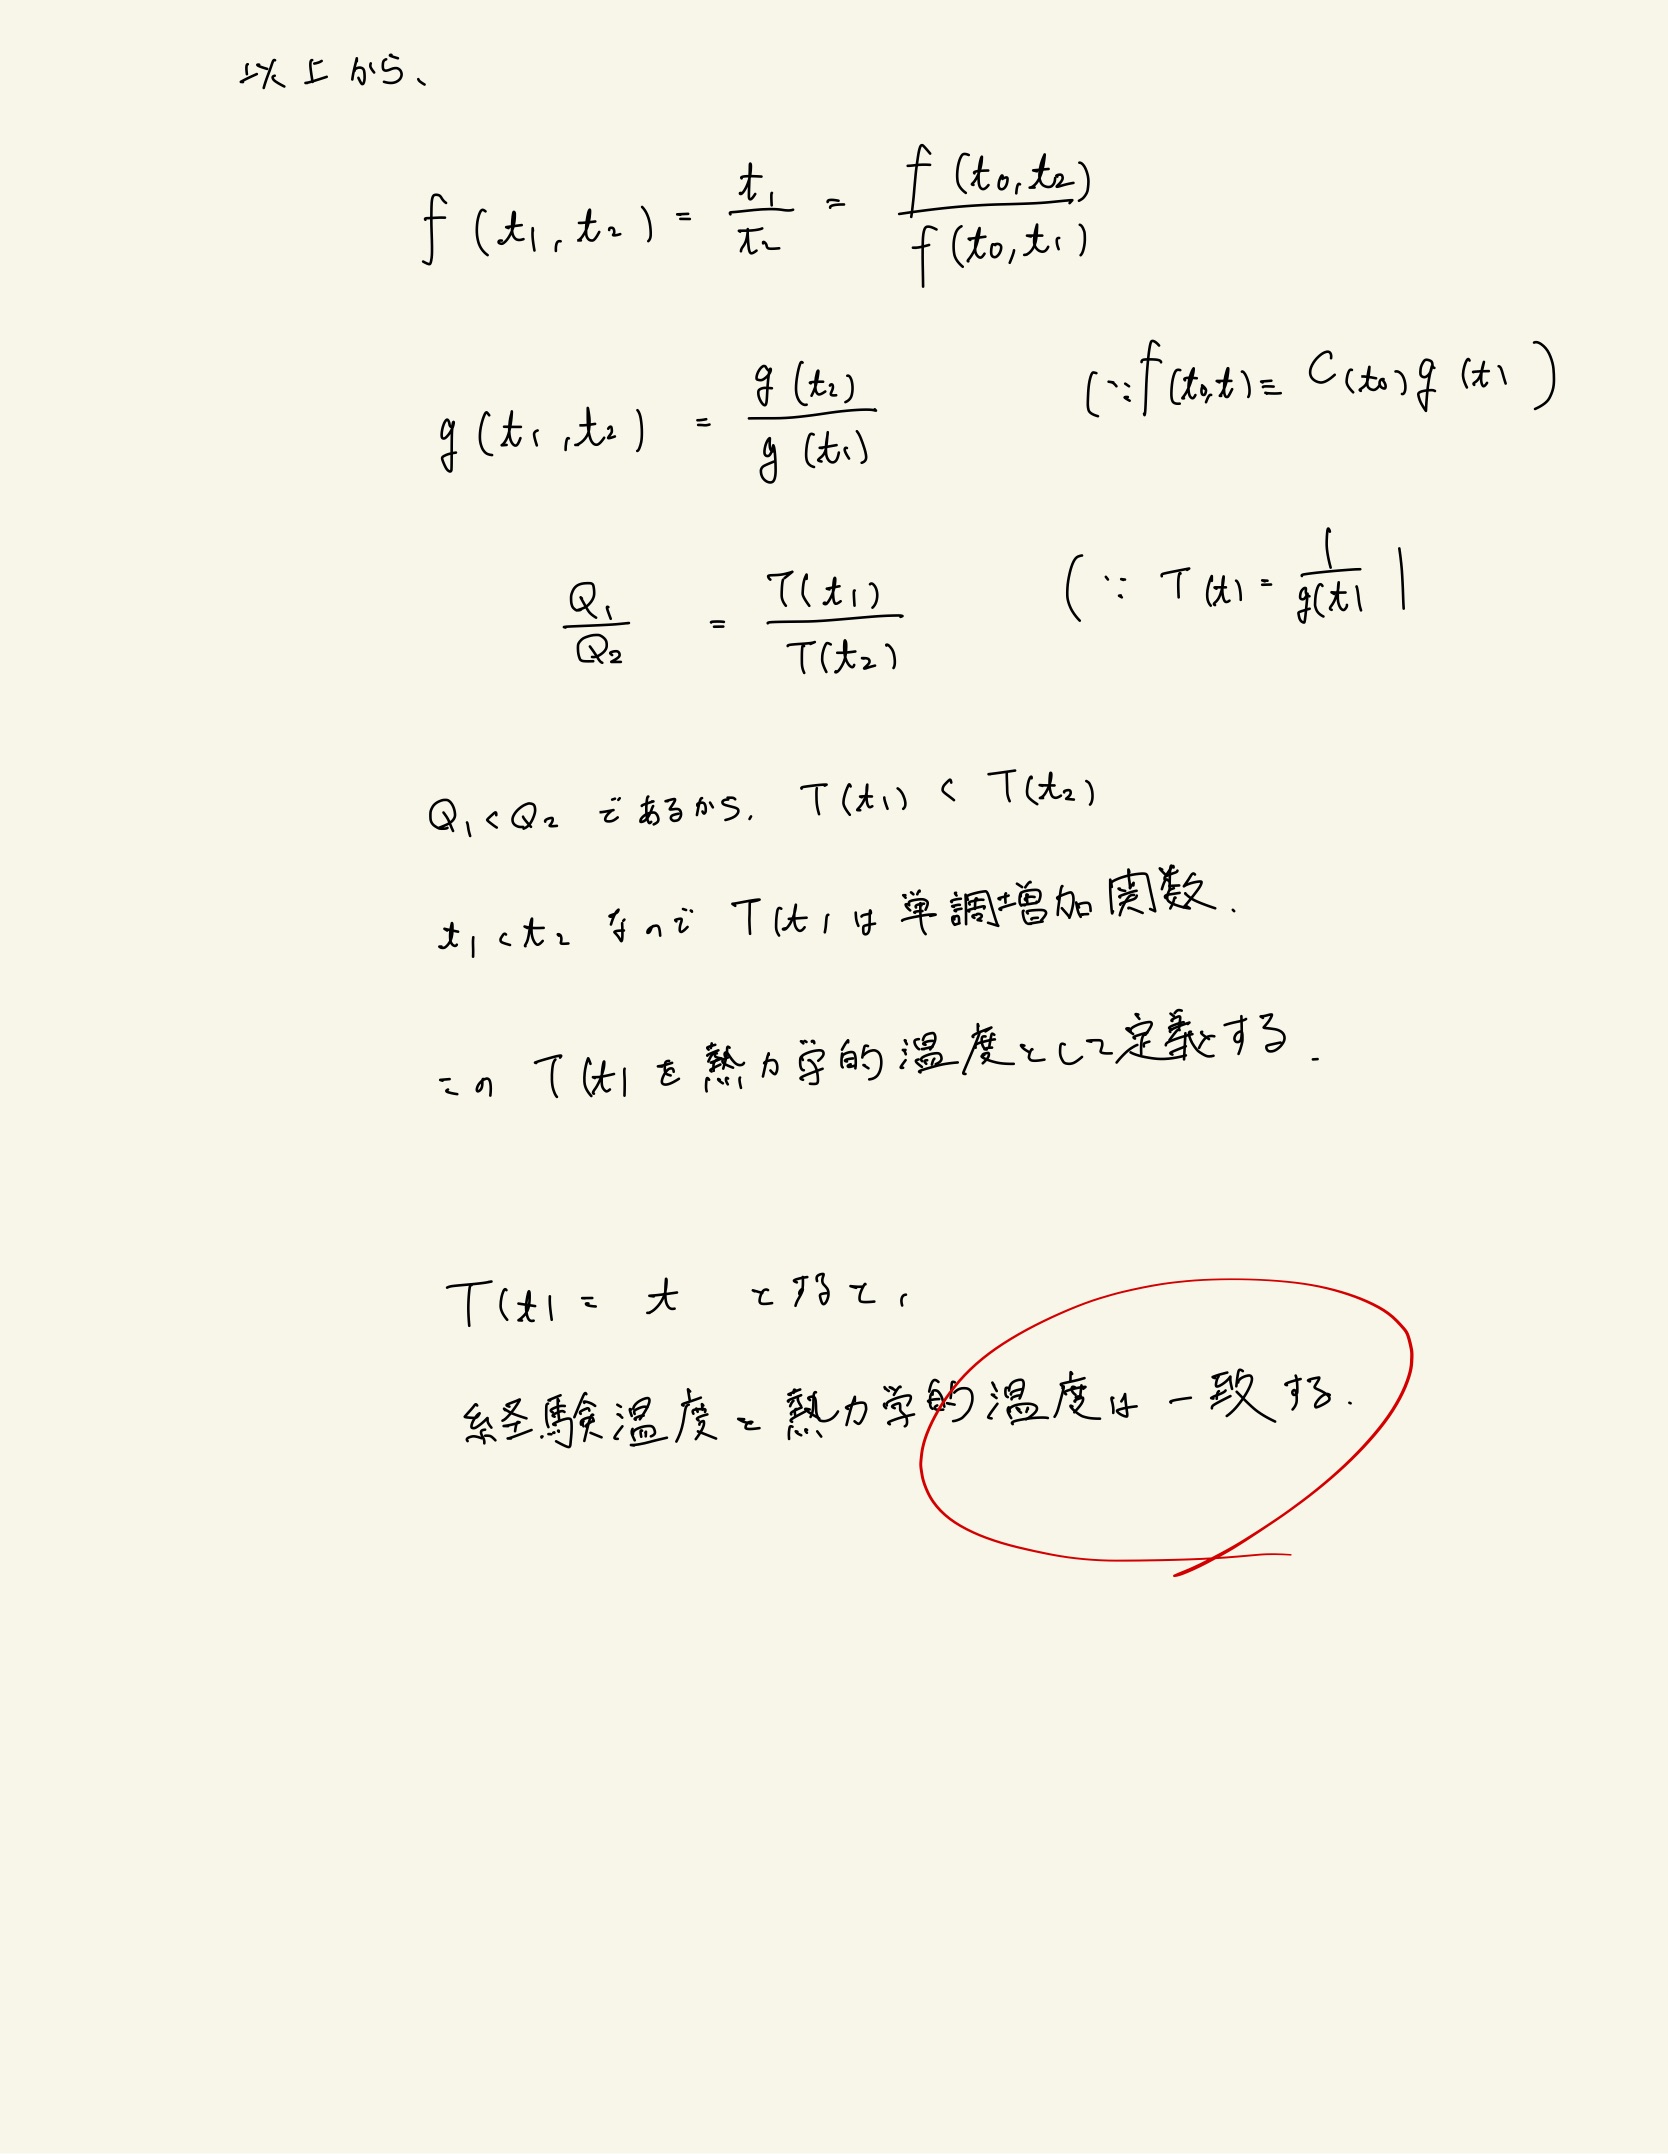 以上から、
f(t₁, t₂) = t₁/t₂ = f(t₀, t₂)/f(t₀, t₁)
g(t₁, t₂) = g(t₂)/g(t₁) (∵ f(t₀,t) ≡ C(t₀)g(t))
Q₁/Q₂ = T(t₁)/T(t₂) (∵ T(t) = 1/g(t))
Q₁ < Q₂ であるから. T(t₁) < T(t₂)
t₁ < t₂ なので T(t) は単調増加関数.
この T(t) を熱力学的温度として定義とする.
T(t) = t とすると,
経験温度と熱力学的温度は一致する.